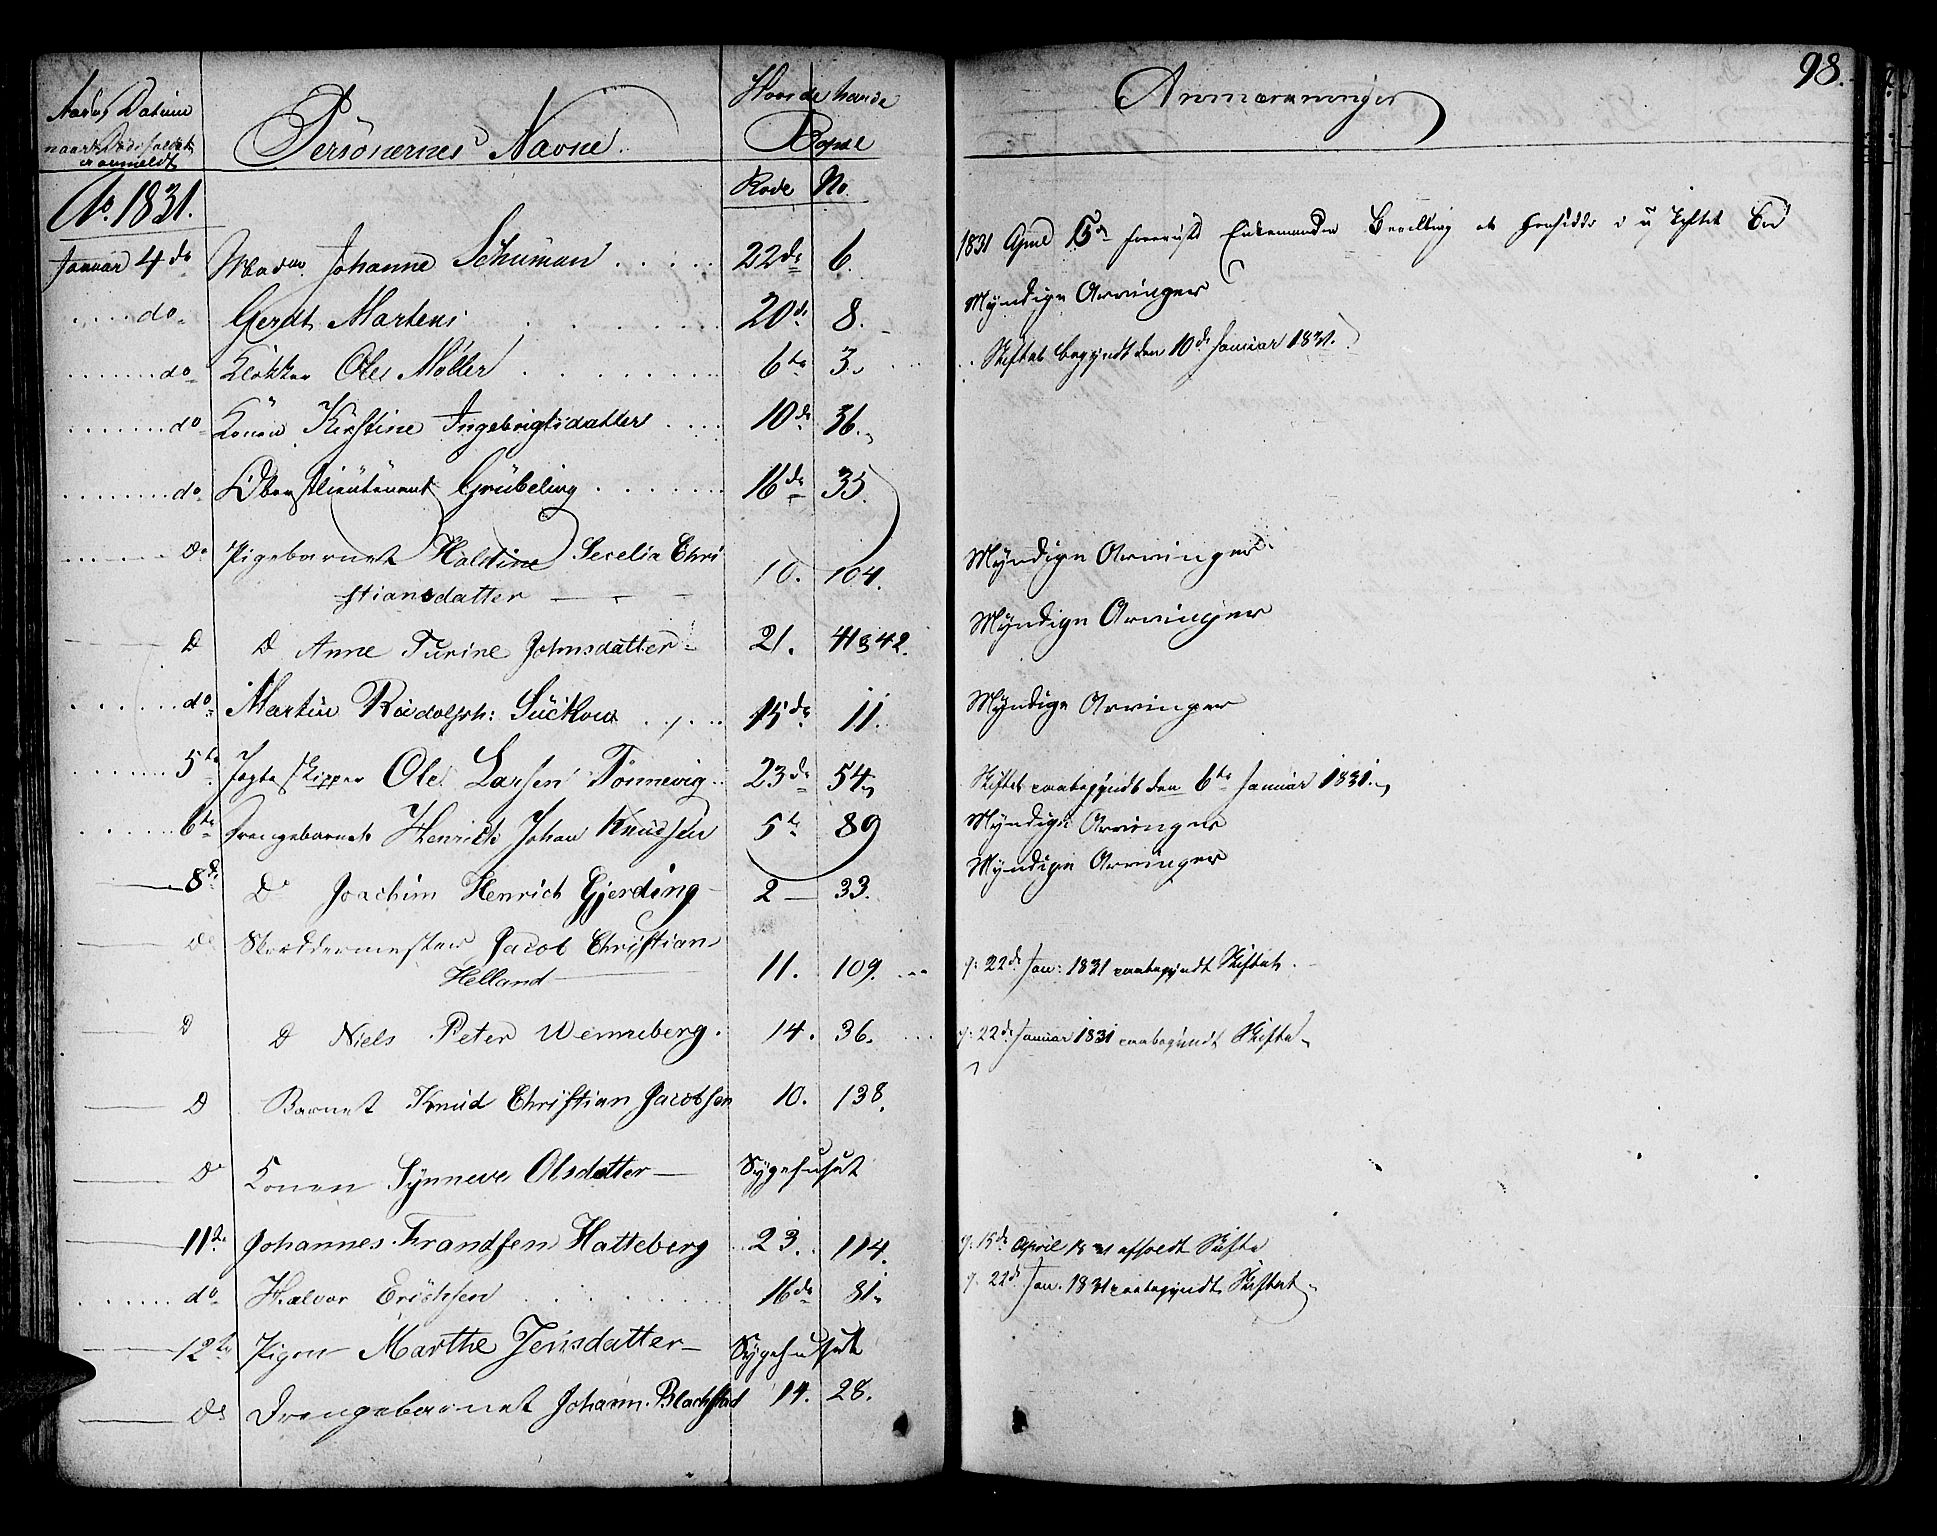 98.
Aar og Datum
naar Dødsfaldet
er anmeldt
Personernes Navne.
Hvor de havde
Bopæl
Rode No.
Anmærkninger
Ao. 1831.
Januar 4de Madme Johanne Schuman . . . . . 22de 6. 1831 April 15de foreviiste Enkemanden Bevilling at hensidde i u skiftet Boe
. . . . do. Gerdt Martens . . . . . 20de 8. Myndige Arvinger
. . . . do. Klokker Ole Møller . . . . . 6te 3. Skiftet begyndt den 10de Januar 1831.
. . . . do. Konen Kirstine Ingebrigtsdatter . . . . 10de 36.
. . . . do. Oberstlieutenant Grübeling . . . . . 16de 35.
. . . . Do Pigebarnet Haldine Secelia Chri
stiansdatter — - - 10. 104. Myndige Arvinger
D D Anne Turine Johnsdatter - 21. 41 & 42. Myndige Arvinger
. . . . do. Martin Rudolph: Suckow . . . . 15de 11. Myndige Arvinger
. . . . 5te Jagteskipper Ole Larsen Tønnevig . . 23de 54. Skiftet paabegyndt den 6te Januar 1831.
. . . . 6te Drengebarnet Henrich Johan Knudsen 5te 89 Myndige Arvinger
8de Do Joachim Henrich Gjerding — 2 — 33. Myndige Arvinger
Do Skreddermester Jacob Christian
Helland — 11. 109. . . . 22de Jan: 1831 paabegyndt Skiftet.
D D Niels Peter Wenneberg. 14. 36. . . . 22de Januar 1831 paabegyndt Skifte
D Barnet Knud Christian Jacobsen 10. 138.
Do Konen Synneve Olsdatter — Sygehuset
11te Johannes Frandsen Hatteberg . 23. 114. 15de April 1831 afholdt Skifte
. . . . do. Halvor Erichsen . . . . . 16de 81. 22de Jan. 1831 paabegyndt Skiftet
12te Pigen Marthe Jensdatter — Sygehuset
Do Drengebarnet Johann Blachstad 14. 28.